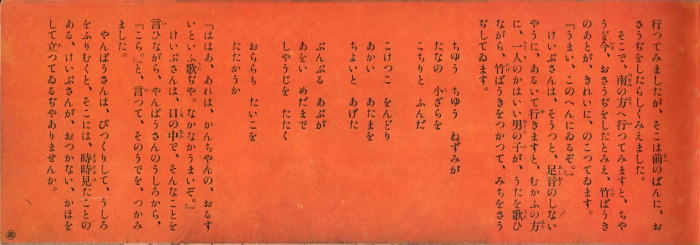 行つてみましたが、そこは前のばんに、お
さうぢをしたらしくみえました。
そこで、南の方へ行つてみますと、ちや
うど今、おさうぢをしたとみえ、竹ばうき
のあとが、きれいに、のこつてゐます。
『うまい、このへんにゐるぞ。』
けいぶさんは、そうつと、足音のしない
やうに、あるいて行きますと、むかふの方
に、一人のかはいい男の子が、うたを歌ひ
ながら、竹ばうきをつかつて、みちをさう
ぢしてゐます。
ちゆう ちゆう ねずみが
たなの 小ざらを
こちりと ふんだ
こけつこ をんどり
あかい あたまを
ちよいと あげた
ぶんぶる あぶが
あをい めだまで
しやうじを たたく
おららも たいこを
たたかうか
『ははあ、あれは、かんちやんの、おるす
いといふ歌ぢや。なかなかうまいぞ。』
けいぶさんは、口の中で、そんなことを
言ひながら、やんばうさんのうしろから、
『こら。』と、言つて、そのうでを、つかみ
ました。
やんばうさんは、びつくりして、うしろ
をふりむくと、そこには、時時見たことの
ある、けいぶさんが、おつかない、かほを
して立つてゐるぢやありませんか。